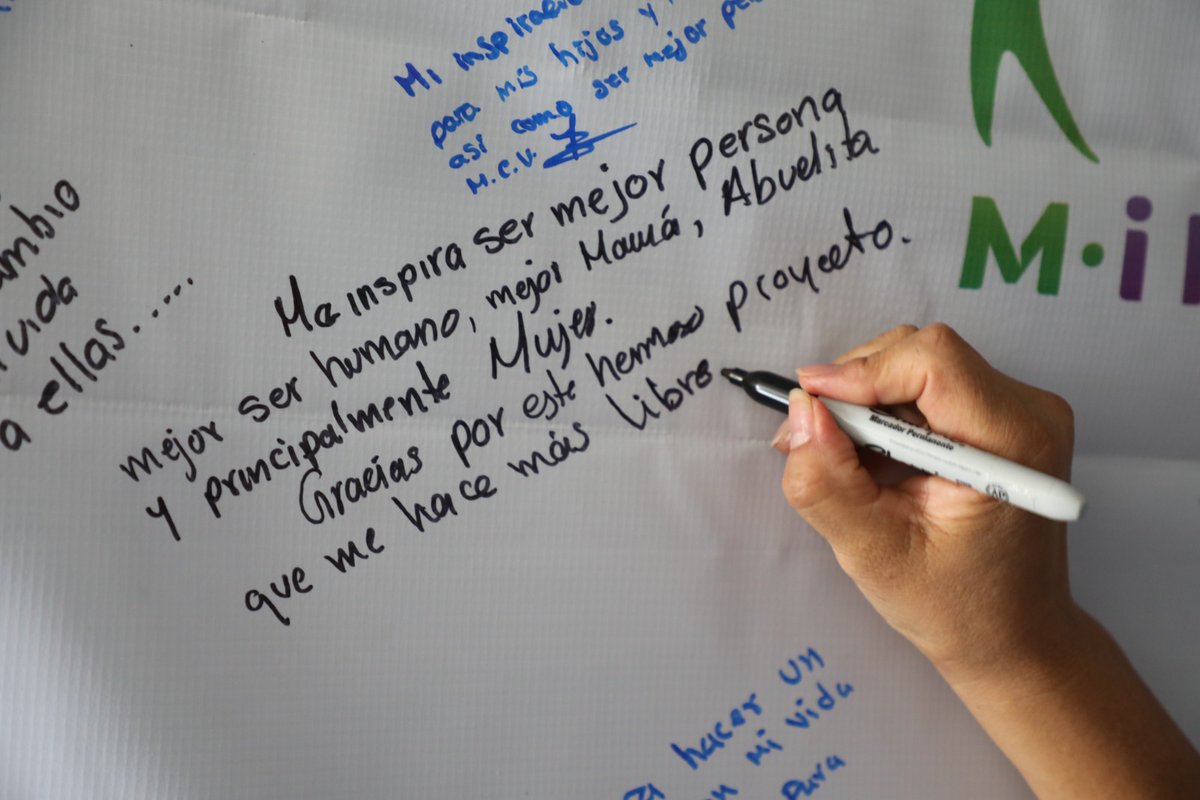 Mi inspiració
para mis hijos y
así como ser mejor pe
M.C.V.
ambio
vida
a ellas.....
Me inspira ser mejor persona
mejor ser humano, mejor Mamá, Abuelita
y principalmente Mujer.
Gracias por este hermoso proyecto.
que me hace más libre
M·i
Marcador Permanente
hacer un
mi vida
para